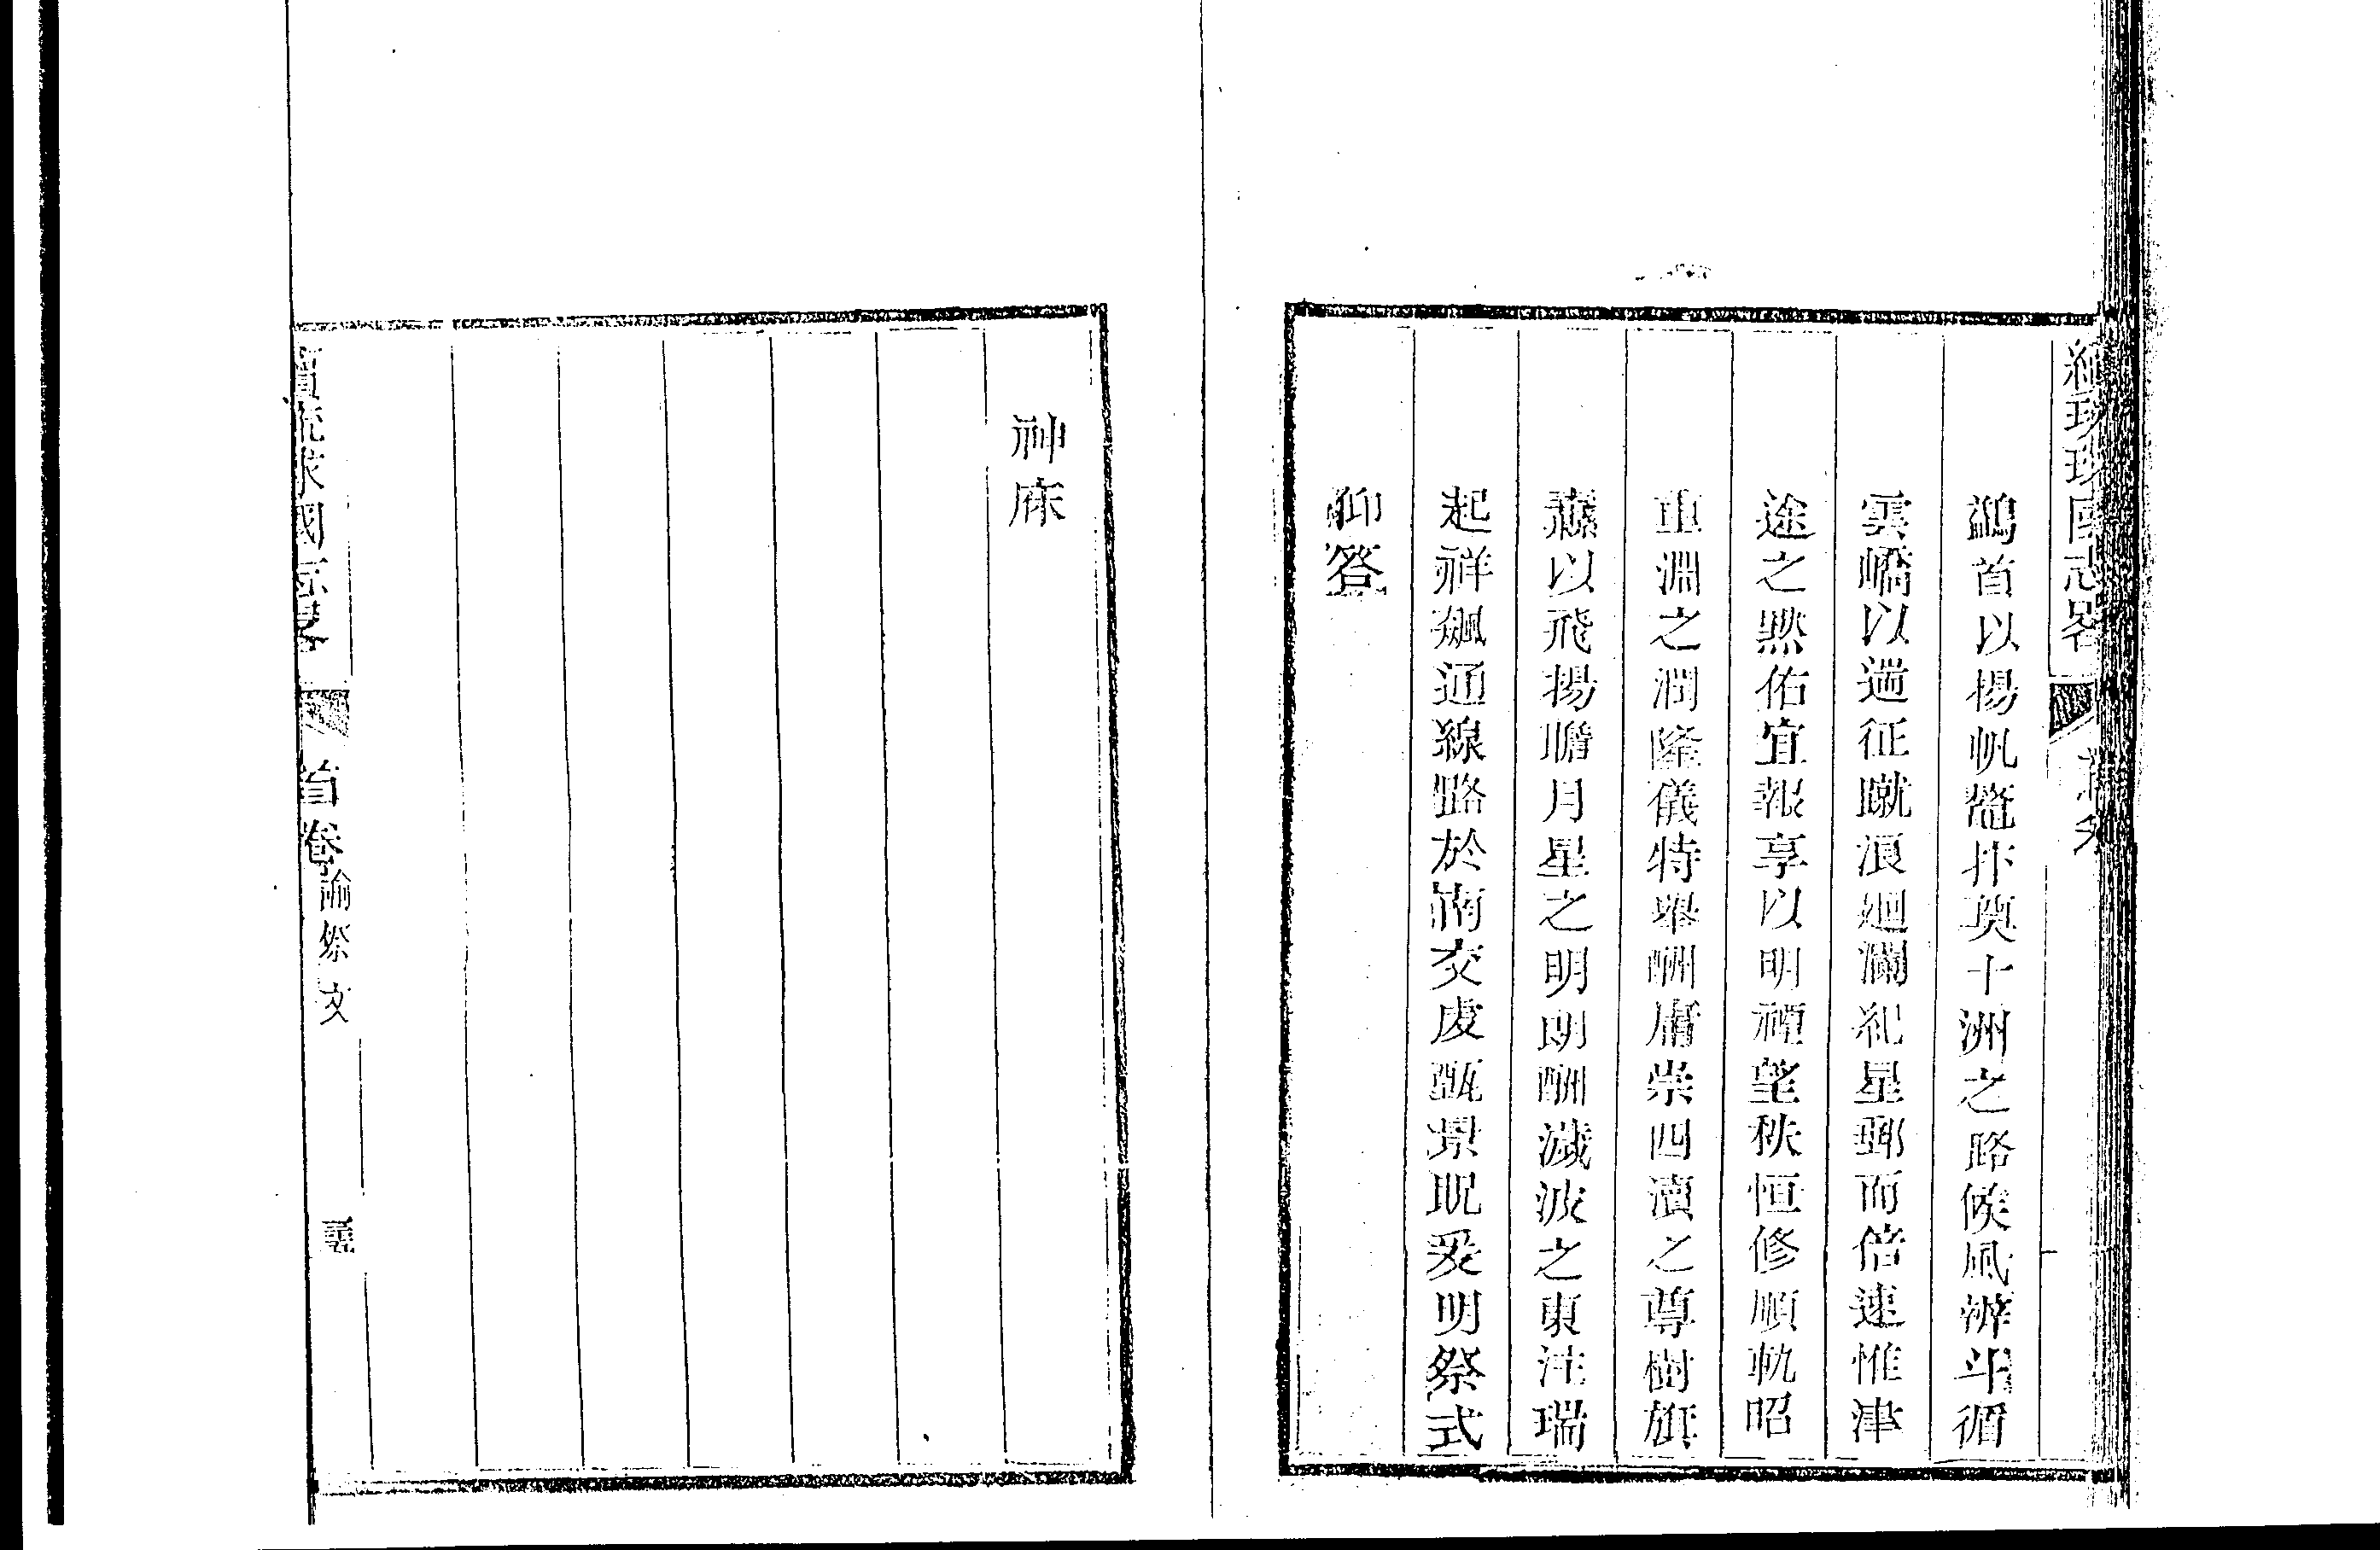 續琉球國志畧
首卷
鷁首以揚帆鼇抃奠十洲之路候風辨斗循
雲嶠以遄征蹴浪廻瀾紀星郵而倍速惟津
途之默佑宜報享以明禋望秩恒修順軌昭
重淵之潤隆儀特舉酬庸崇四瀆之尊樹旂
纛以飛揚瞻月星之明朗酬濊波之東注瑞
起祥飆通線路於南交虔甄景貺爰明祭式
仰答
神庥
續琉球國志畧
首卷
諭祭文